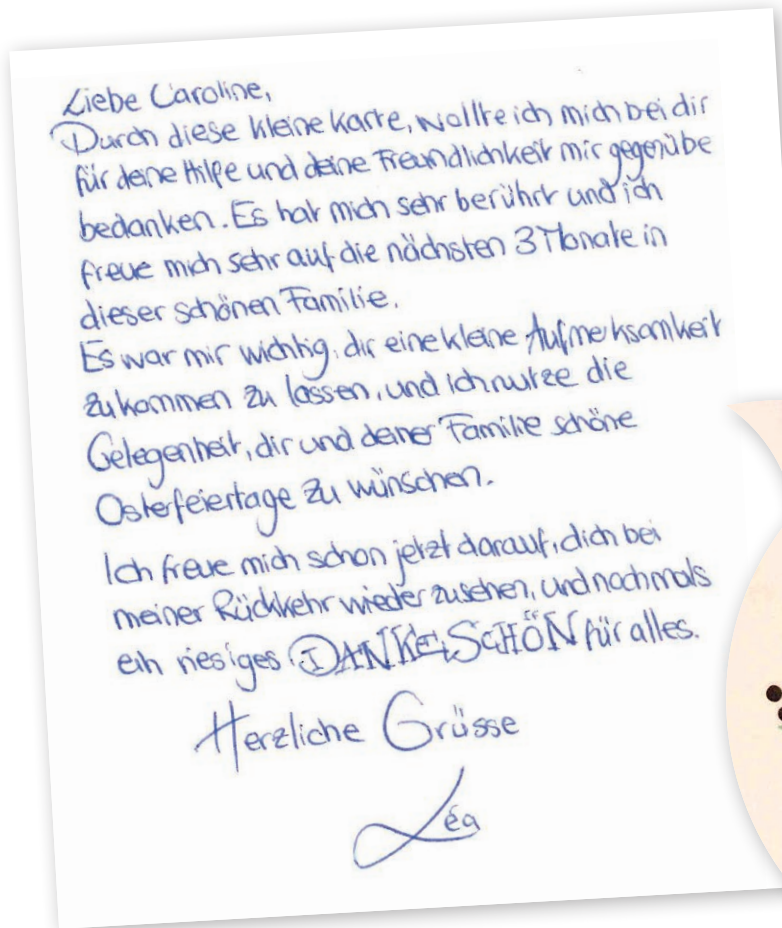 Liebe Caroline,
Durch diese kleine Karte, wollte ich mich bei dir
für deine Hilfe und deine Freundlichkeit mir gegenübe
bedanken. Es hat mich sehr berührt und ich
freue mich sehr auf die nächsten 3 Monate in
dieser schönen Familie.
Es war mir wichtig, dir eine kleine Aufmerksamkeit
zukommen zu lassen, und ich nutze die
Gelegenheit, dir und deiner Familie schöne
Osterfeiertage zu wünschen.
Ich freue mich schon jetzt darauf, dich bei
meiner Rückkehr wieder zusehen, und nochmals
ein riesiges DANKESCHÖN für alles.
Herzliche Grüsse
Léa